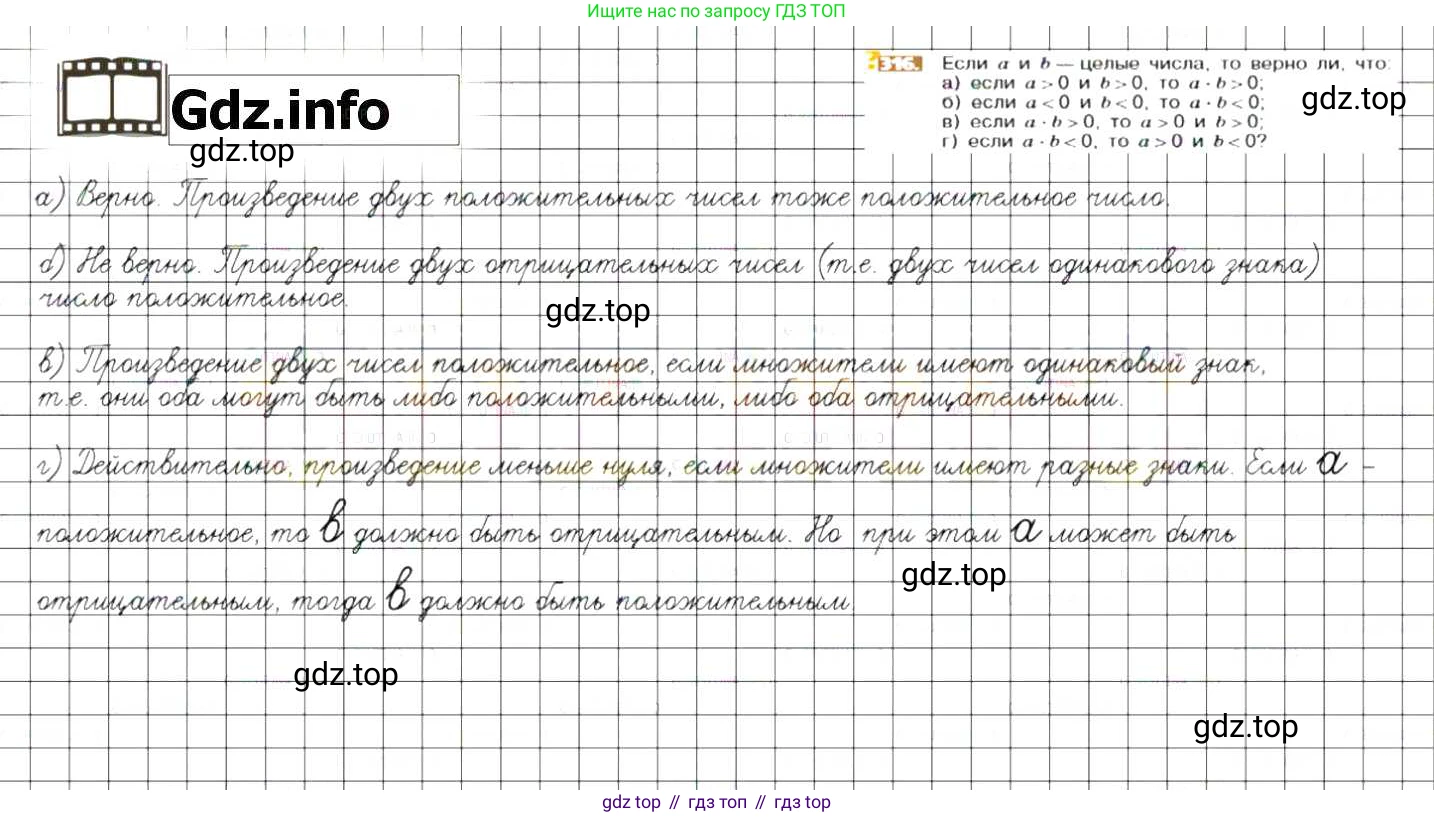 Ищите нас по запросу ГДЗ ТОП
316. Если a и b — целые числа, то верно ли, что:
а) если a > 0 и b > 0, то a · b > 0;
б) если a < 0 и b < 0, то a · b < 0;
в) если a · b > 0, то a > 0 и b > 0;
г) если a · b < 0, то a > 0 и b < 0?
gdz.top
Gdz.info
gdz.top
а) Верно. Произведение двух положительных чисел тоже положительное число.
б) Не верно. Произведение двух отрицательных чисел (т.е. двух чисел одинакового знака)
число положительное.
gdz.top
в) Произведение двух чисел положительное, если множители имеют одинаковый знак,
т.е. они оба могут быть либо положительными, либо оба отрицательными.
г) Действительно, произведение меньше нуля, если множители имеют разные знаки. Если а –
положительное, то в должно быть отрицательным. Но при этом а может быть
gdz.top
отрицательным, тогда в должно быть положительным.
gdz.top
gdz.top
gdz top // гдз топ // гдз top